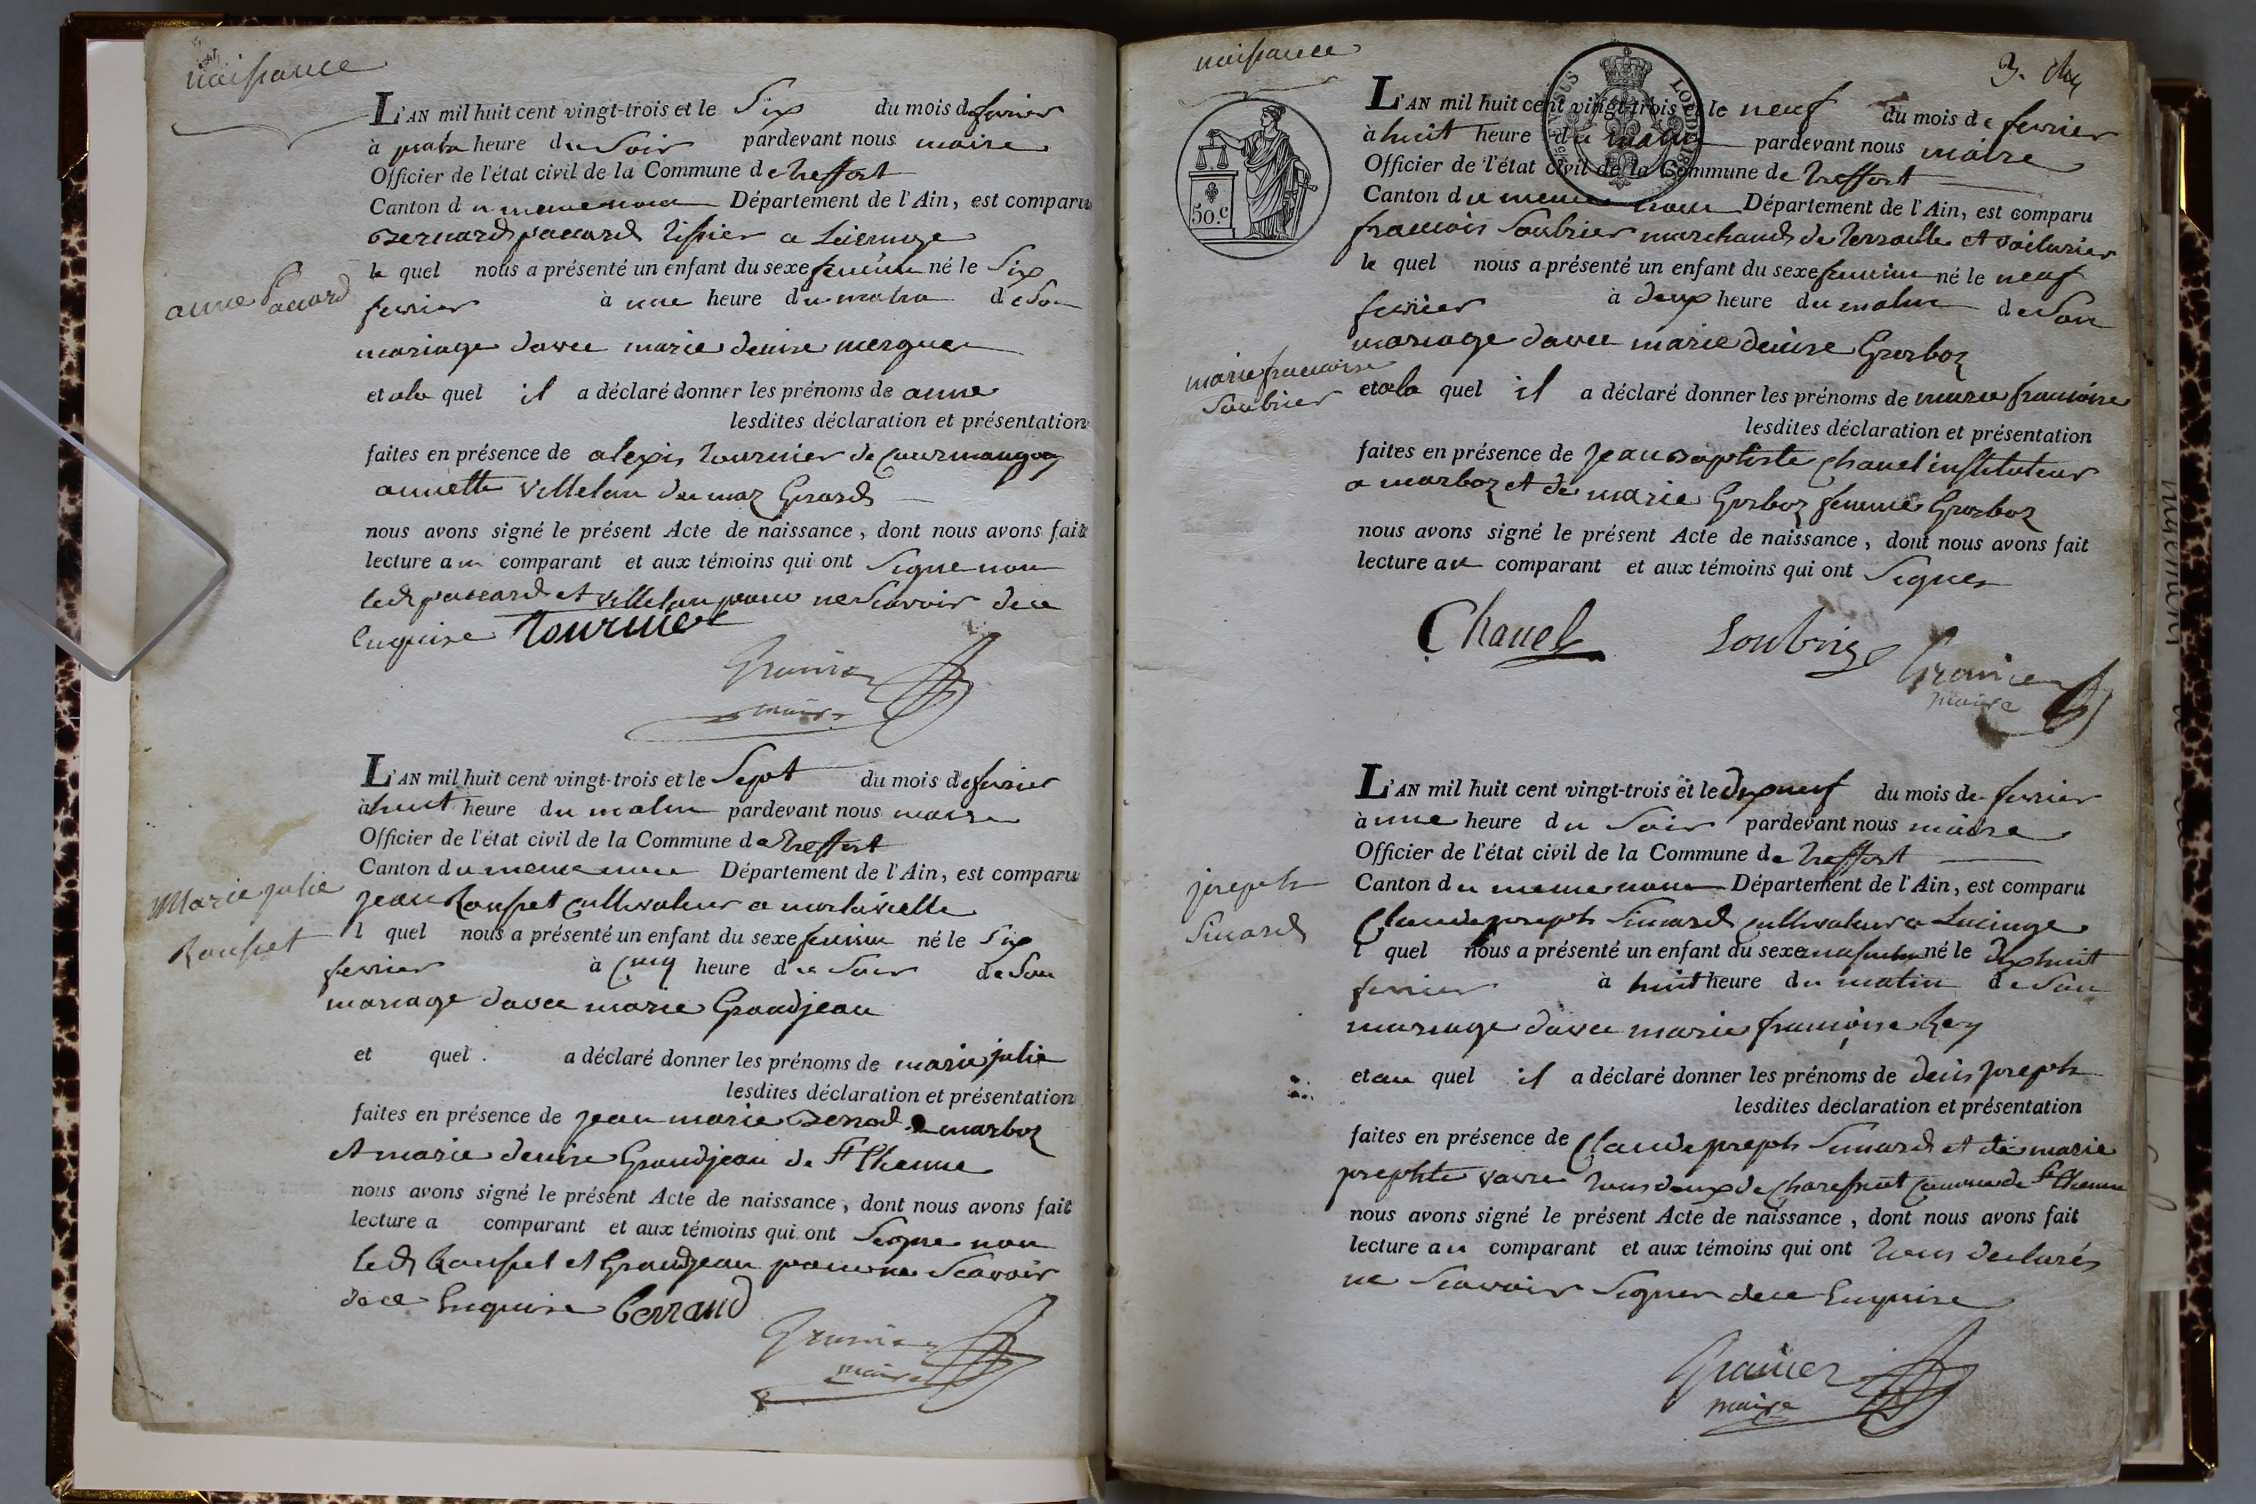 naissance
L'AN mil huit cent vingt-trois et le Six du mois de fevrier
à quatre heure du Soir pardevant nous maire
Officier de l'état civil de la Commune de treffort
Canton du meme nom Département de l'Ain, est comparu
Bernard paccard tissier a
le quel nous a présenté un enfant du sexe feminin né le Six
anne Paccard
fevrier à une heure du matin de Son
mariage davec marie denise merguer
et a la quel il a déclaré donner les prénoms de anne
lesdites déclaration et présentation
faites en présence de alexis tournier de Courmangoux
annette villelan du maz Girard
nous avons signé le présent Acte de naissance, dont nous avons fait
lecture au comparant et aux témoins qui ont Signe non
led paccard et villelan pour ne Scavoir de ce
Enquise Tournier
Granier
maire
L'AN mil huit cent vingt-trois et le Sept du mois de fevrier
à huit heure du matin pardevant nous maire
Officier de l'état civil de la Commune de treffort
Canton du meme nom Département de l'Ain, est comparu
Marie julie
Rousset
jean Rousset cultivateur a montaivelle
l quel nous a présenté un enfant du sexe feminin né le Six
fevrier à Cinq heure du Soir de Son
mariage davec marie Grandjean
et quel. a déclaré donner les prénoms de marie julie
lesdites déclaration et présentation
faites en présence de jean marie Berrod a marboz
et marie denise Grandjean de St Etienne
nous avons signé le présent Acte de naissance, dont nous avons fait
lecture a comparant et aux témoins qui ont Signe non
led Rousset et Grandjean pour ne Scavoir
de ce Enquise berraud
Granier
maire
naissance
3.
50.c
L'AN mil huit cent vingt-trois et le neuf du mois de fevrier
à huit heure du matin pardevant nous maire
Officier de l'état civil de la Commune de treffort
Canton du meme nom Département de l'Ain, est comparu
francois Soubrier marchand de terraille et voiturier
le quel nous a présenté un enfant du sexe feminin né le neuf
fevrier à deux heure du matin de Son
mariage davec marie denise Gorboz
marie francoise
Soubrier
et a la quel il a déclaré donner les prénoms de marie francoise
lesdites déclaration et présentation
faites en présence de jean Baptiste Chanel instituteur
a marboz et de marie Gorboz femme Gorboz
nous avons signé le présent Acte de naissance, dont nous avons fait
lecture au comparant et aux témoins qui ont Signer
Chanel Soubrier Granier
maire
L'AN mil huit cent vingt-trois et le dixneuf du mois de fevrier
à une heure du Soir pardevant nous maire
Officier de l'état civil de la Commune de treffort
joseph
Sinard
Canton du meme nom Département de l'Ain, est comparu
Claude joseph Sinard cultivateur a Lucinge
l quel nous a présenté un enfant du sexe masculin né le dixhuit
fevrier à huit heure du matin de Son
mariage davec marie francoise Rey
et au quel il a déclaré donner les prénoms de denis joseph
lesdites déclaration et présentation
faites en présence de Claude joseph Sinard et de marie
josephte vavre tous deux de Commune de St Etienne
nous avons signé le présent Acte de naissance, dont nous avons fait
lecture au comparant et aux témoins qui ont tous declarés
ne Scavoir Signer de ce Enquise
Granier
maire